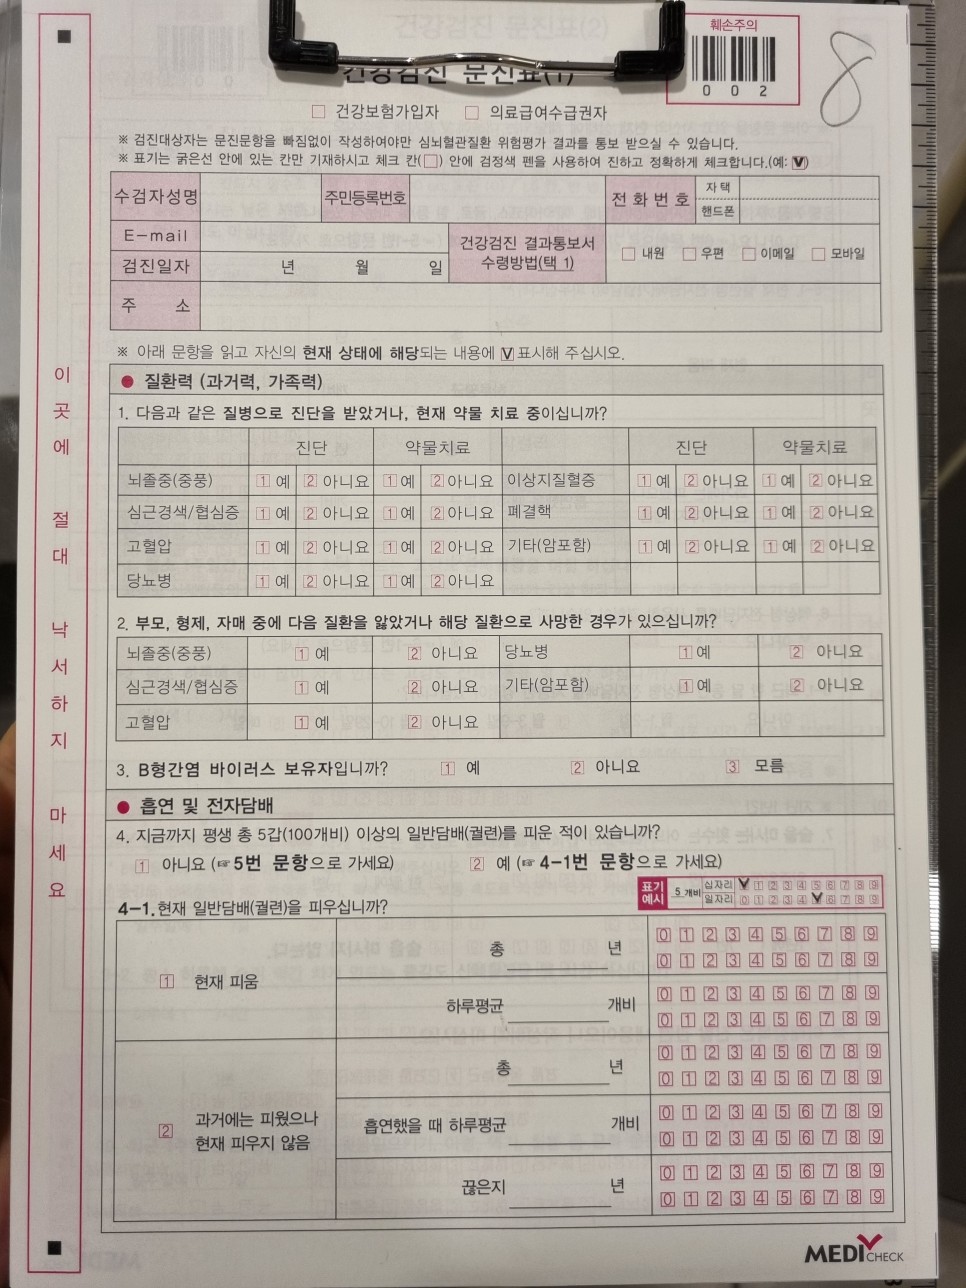 훼손주의
0 0 2
8
건강검진 문진표(1)
□ 건강보험가입자 □ 의료급여수급권자
※ 검진대상자는 문진문항을 빠짐없이 작성하여야만 심뇌혈관질환 위험평가 결과를 통보 받으실 수 있습니다.
※ 표기는 굵은선 안에 있는 칸만 기재하시고 체크 칸(□) 안에 검정색 펜을 사용하여 진하고 정확하게 체크합니다.(예: ☑)
수검자성명 주민등록번호 전화번호 자택
핸드폰
E-mail 건강검진 결과통보서 수령방법(택 1) □ 내원 □ 우편 □ 이메일 □ 모바일
검진일자 년 월 일
주 소
※ 아래 문항을 읽고 자신의 현재 상태에 해당되는 내용에 ☑표시해 주십시오.
이곳에 절대 낙서하지 마세요
● 질환력 (과거력, 가족력)
1. 다음과 같은 질병으로 진단을 받았거나, 현재 약물 치료 중이십니까?
진단 약물치료 진단 약물치료
뇌졸중(중풍) 1 예 2 아니요 1 예 2 아니요 이상지질혈증 1 예 2 아니요 1 예 2 아니요
심근경색/협심증 1 예 2 아니요 1 예 2 아니요 폐결핵 1 예 2 아니요 1 예 2 아니요
고혈압 1 예 2 아니요 1 예 2 아니요 기타(암포함) 1 예 2 아니요 1 예 2 아니요
당뇨병 1 예 2 아니요 1 예 2 아니요
2. 부모, 형제, 자매 중에 다음 질환을 앓았거나 해당 질환으로 사망한 경우가 있으십니까?
뇌졸중(중풍) 1 예 2 아니요 당뇨병 1 예 2 아니요
심근경색/협심증 1 예 2 아니요 기타(암포함) 1 예 2 아니요
고혈압 1 예 2 아니요
3. B형간염 바이러스 보유자입니까? 1 예 2 아니요 3 모름
● 흡연 및 전자담배
4. 지금까지 평생 총 5갑(100개비) 이상의 일반담배(궐련)를 피운 적이 있습니까?
1 아니요 (☞5번 문항으로 가세요) 2 예 (☞4-1번 문항으로 가세요)
표기예시 5 개비 십자리 1 2 3 4 5 6 7 8 9
일자리 0 1 2 3 4 6 7 8 9
4-1.현재 일반담배(궐련)를 피우십니까?
1 현재 피움 총 년 0 1 2 3 4 5 6 7 8 9
0 1 2 3 4 5 6 7 8 9
하루평균 개비 0 1 2 3 4 5 6 7 8 9
0 1 2 3 4 5 6 7 8 9
2 과거에는 피웠으나 현재 피우지 않음 총 년 0 1 2 3 4 5 6 7 8 9
0 1 2 3 4 5 6 7 8 9
흡연했을 때 하루평균 개비 0 1 2 3 4 5 6 7 8 9
0 1 2 3 4 5 6 7 8 9
끊은지 년 0 1 2 3 4 5 6 7 8 9
0 1 2 3 4 5 6 7 8 9
MEDICHECK